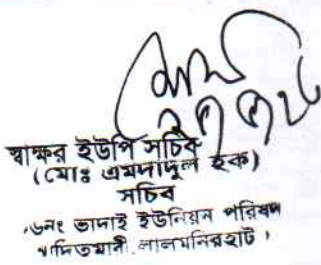 স্বাক্ষর ইউপি সচিব
(মোঃ এমদাদুল হক)
সচিব
৬নং ভাদাই ইউনিয়ন পরিষদ
আদিতমারী, লালমনিরহাট।